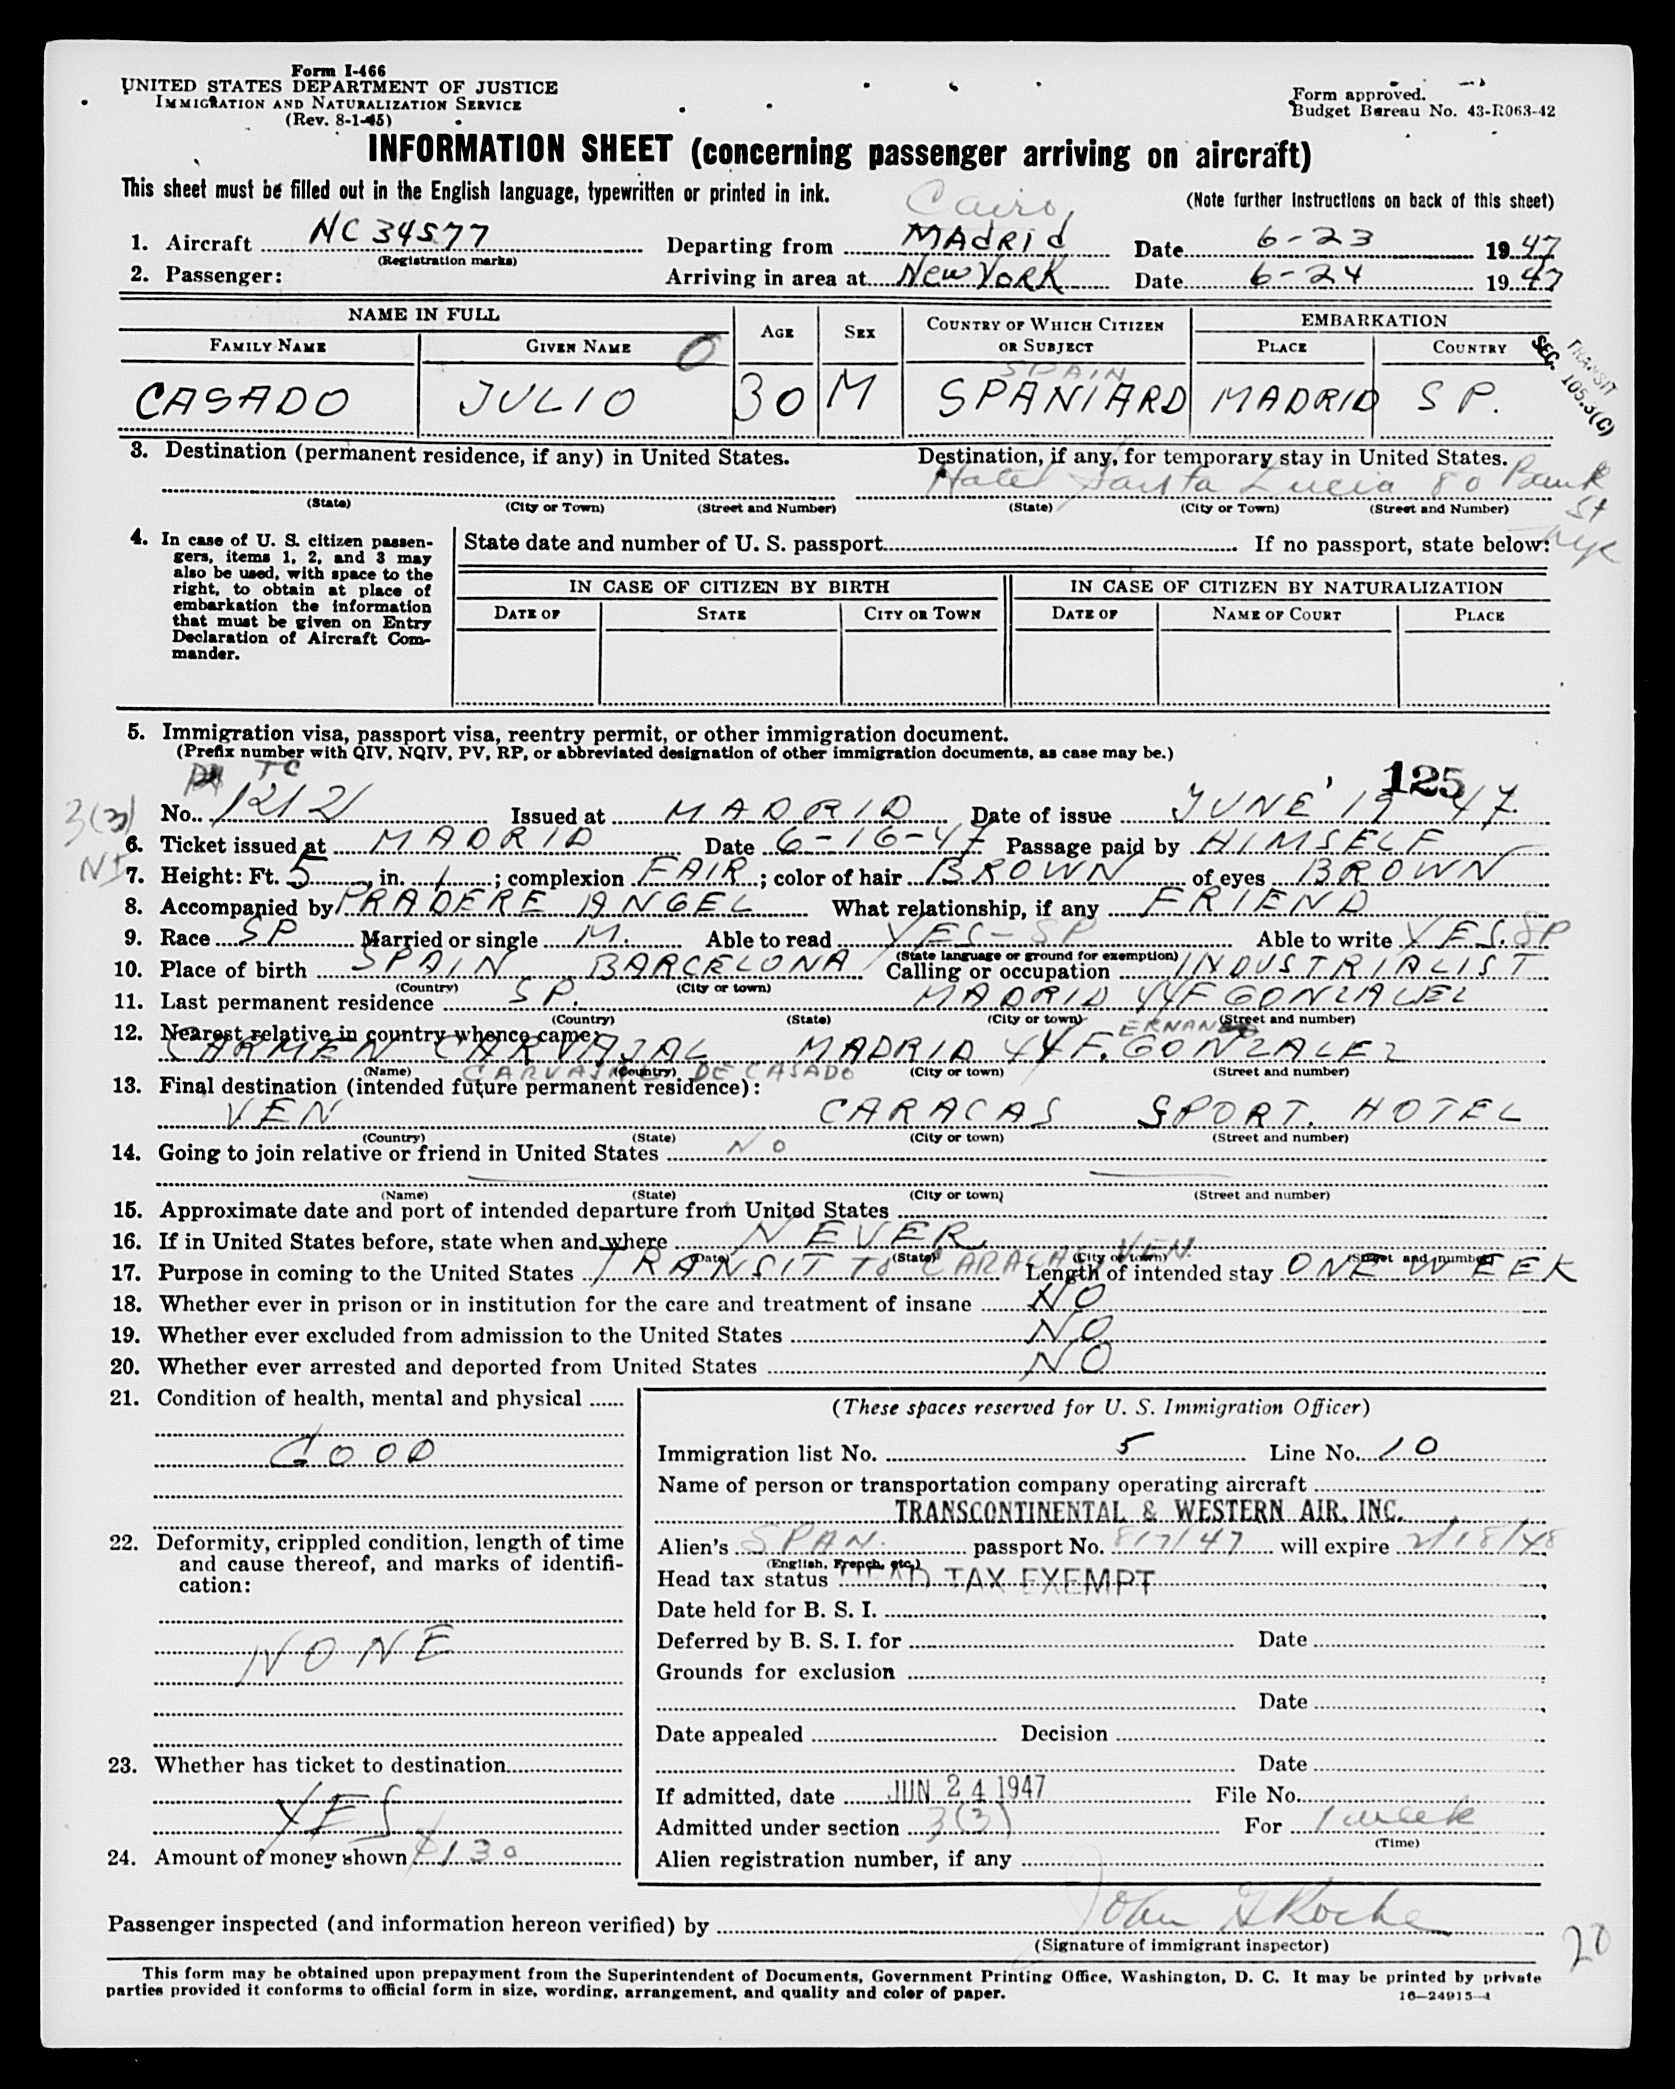 Form I-466
UNITED STATES DEPARTMENT OF JUSTICE
IMMIGRATION AND NATURALIZATION SERVICE
(Rev. 8-1-45)
Form approved.
Budget Bureau No. 43-R063-42
INFORMATION SHEET (concerning passenger arriving on aircraft)
This sheet must be filled out in the English language, typewritten or printed in ink.
(Note further instructions on back of this sheet)
Cairo,
1. Aircraft NC 34577 Departing from MAdRid Date 6-23 1947
(Registration marks)
2. Passenger: Arriving in area at New YoRK Date 6-24 1947
NAME IN FULL AGE SEX COUNTRY OF WHICH CITIZEN OR SUBJECT EMBARKATION
FAMILY NAME GIVEN NAME PLACE COUNTRY
O
SPAIN
TRANSIT
SEC. 105.3(C)
CASADO JULIO 30 M SPANIARD MADRID SP.
3. Destination (permanent residence, if any) in United States. Destination, if any, for temporary stay in United States.
Hotel Santa Lucia 80 Bank St NYC
(State) (City or Town) (Street and Number) (State) (City or Town) (Street and Number)
4. In case of U. S. citizen passengers, items 1, 2, and 3 may also be used, with space to the right, to obtain at place of embarkation the information that must be given on Entry Declaration of Aircraft Commander.
State date and number of U. S. passport If no passport, state below:
IN CASE OF CITIZEN BY BIRTH IN CASE OF CITIZEN BY NATURALIZATION
DATE OF STATE CITY OR TOWN DATE OF NAME OF COURT PLACE
5. Immigration visa, passport visa, reentry permit, or other immigration document.
(Prefix number with QIV, NQIV, PV, RP, or abbreviated designation of other immigration documents, as case may be.)
TC
125
3(3)
No. 1212 Issued at MADRID Date of issue JUNE 19 47.
6. Ticket issued at MADRID Date 6-16-47 Passage paid by HIMSELF
7. Height: Ft. 5, in. 1; complexion FAIR; color of hair BROWN of eyes BROWN
8. Accompanied by PRADERE ANGEL What relationship, if any FRIEND
9. Race SP Married or single M. Able to read YES-SP Able to write YES.SP
(State language or ground for exemption)
10. Place of birth SPAIN BARCELONA Calling or occupation INDUSTRIALIST
(Country) (City or town)
11. Last permanent residence SP. MADRID 44 F GONZALEZ
(Country) (State) (City or town) (Street and number)
12. Nearest relative in country whence came:
CARMEN CARVAJAL MADRID 44 F. GONZALEZ
(Name) (Country) (City or town) (Street and number)
CARVAJAL DE CASADO
13. Final destination (intended future permanent residence):
VEN CARACAS SPORT. HOTEL
(Country) (State) (City or town) (Street and number)
14. Going to join relative or friend in United States No
(Name) (State) (City or town) (Street and number)
15. Approximate date and port of intended departure from United States
16. If in United States before, state when and where NEVER.
(Date) (State) (City or town) (Street and number)
17. Purpose in coming to the United States TRANSIT TO CARACAS VEN Length of intended stay ONE WEEK
18. Whether ever in prison or in institution for the care and treatment of insane NO
19. Whether ever excluded from admission to the United States NO
20. Whether ever arrested and deported from United States NO
21. Condition of health, mental and physical
GOOD
22. Deformity, crippled condition, length of time and cause thereof, and marks of identification:
NONE
23. Whether has ticket to destination
YES
24. Amount of money shown $130
(These spaces reserved for U. S. Immigration Officer)
Immigration list No. 5 Line No. 10
Name of person or transportation company operating aircraft
TRANSCONTINENTAL & WESTERN AIR, INC.
Alien's SPAN. passport No. 817/47 will expire 2/18/48
(English, French, etc.)
Head tax status HEAD TAX EXEMPT
Date held for B. S. I.
Deferred by B. S. I. for Date
Grounds for exclusion
Date
Date appealed Decision
Date
If admitted, date JUN 24 1947 File No.
Admitted under section 3(3) For 1 week
(Time)
Alien registration number, if any
Passenger inspected (and information hereon verified) by John G Roche
(Signature of immigrant inspector)
20
This form may be obtained upon prepayment from the Superintendent of Documents, Government Printing Office, Washington, D. C. It may be printed by private
parties provided it conforms to official form in size, wording, arrangement, and quality and color of paper.
16-24915-1